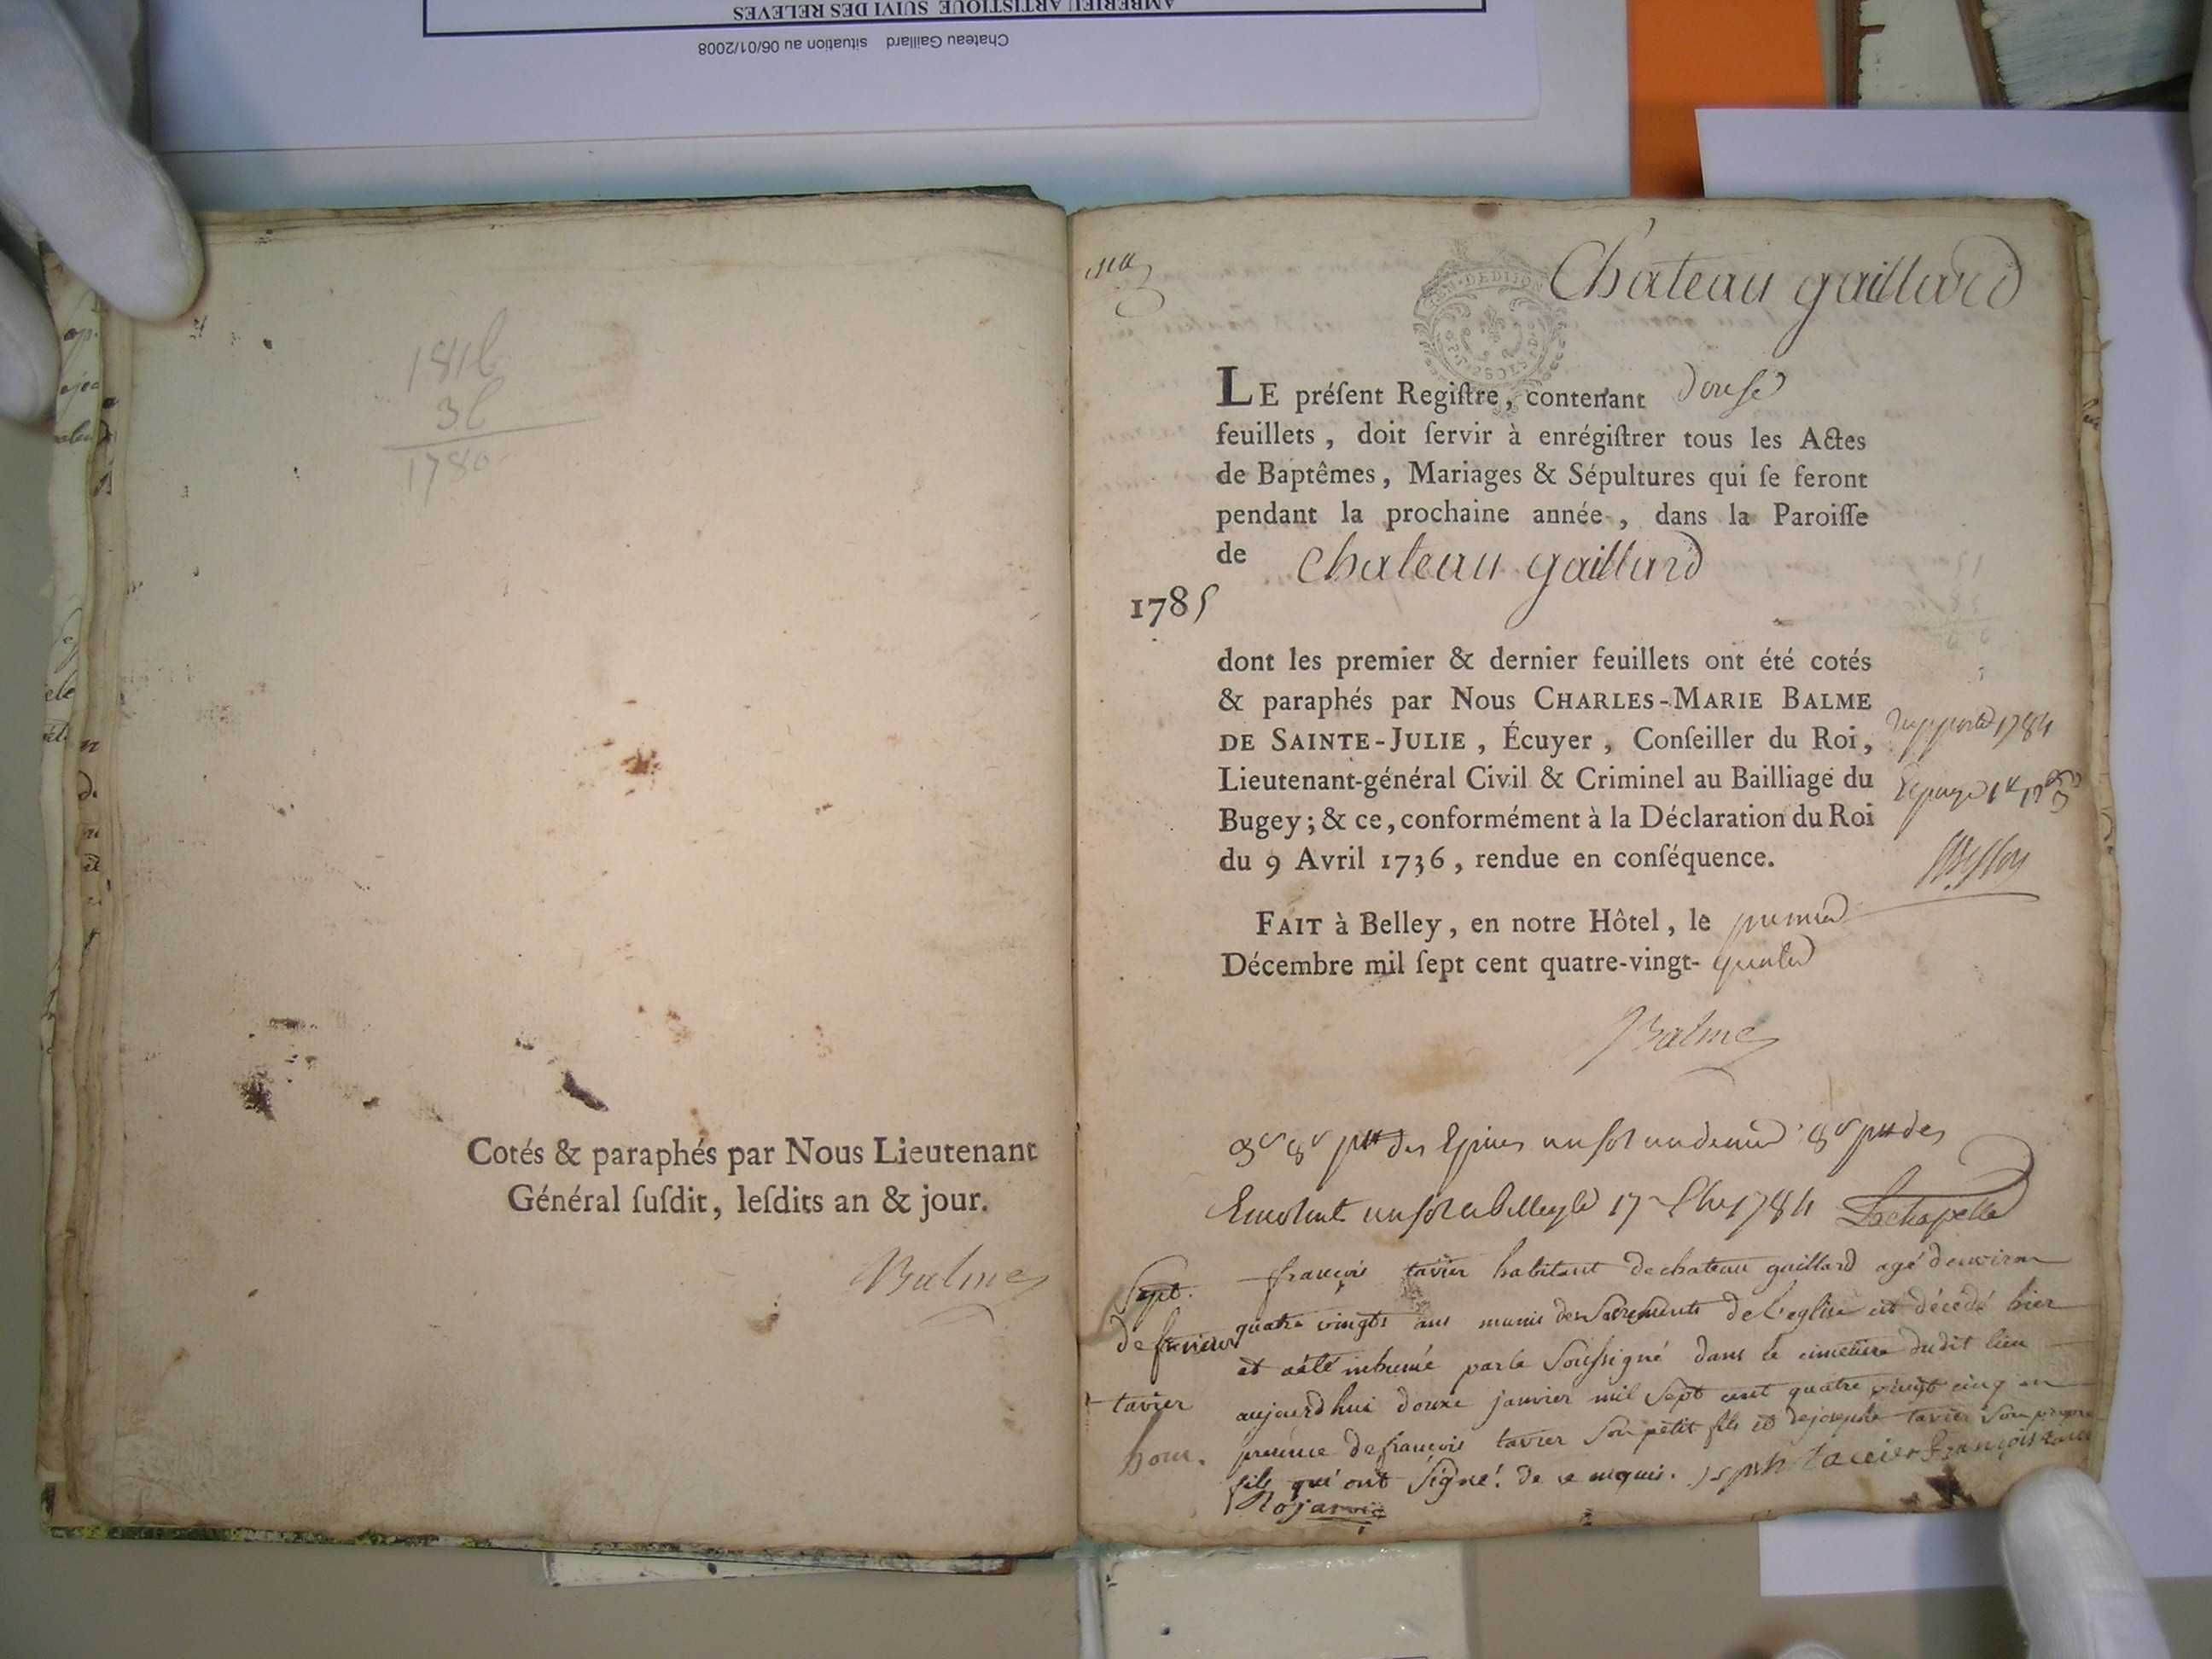 AMBERIEU ARTISTIQUE SUIVI DES RELEVES
Chateau Gaillard situation au 06/01/2008
1816
36
1780
Cotés & paraphés par Nous Lieutenant
Général ſuſdit, leſdits an & jour.
Balme
Chateau gaillard
LE préſent Regiſtre, contenant douſe
feuillets, doit ſervir à enrégiſtrer tous les Actes
de Baptêmes, Mariages & Sépultures qui ſe feront
pendant la prochaine année, dans la Paroiſſe
de chateau gaillard
1785
dont les premier & dernier feuillets ont été cotés
& paraphés par Nous CHARLES-MARIE BALME
DE SAINTE-JULIE, Écuyer, Conſeiller du Roi,
Lieutenant-général Civil & Criminel au Bailliage du
Bugey; & ce, conformément à la Déclaration du Roi
du 9 Avril 1736, rendue en conſéquence.
1784
FAIT à Belley, en notre Hôtel, le premier
Décembre mil ſept cent quatre-vingt- quatre
Balme
des Epices un sol un denier
un sol a belley le 17 1784 Lachapelle
Sept.
de françois
tavier
hour.
françois tavier habitant de chateau gaillard agé d'environ
quatre vingts ans munis des Sacrements de l'eglise est décédé hier
et a été inhumé par le Soussigné dans le cimetiere dudit lieu
aujourd'hui douze janvier mil Sept cent quatre vingt cinq en
presence de françois tavier Son petit fils et de joseph tavier Son propre
fils qui ont Signé de ce requis. joseph tavier françois tavier